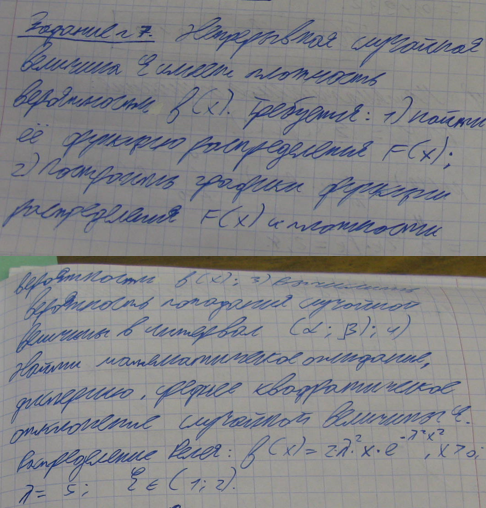 Задание №7. Непрерывная случайная
величина ξ имеет плотность
вероятности f(x). Требуется: 1) найти
её функцию распределения F(x);
2) Построить графики функции
распределения F(x) и плотности
вероятности f(x); 3) вычислить
вероятность попадания случайной
величины в интервал (α; β); 4)
Найти математическое ожидание,
дисперсию, среднее квадратическое
отклонение случайной величины ξ.
Распределение Релея: f(x) = 2λ²·x·e^{-λ²x²}, x>0;
λ = 5; ξ ∈ (1; 2).